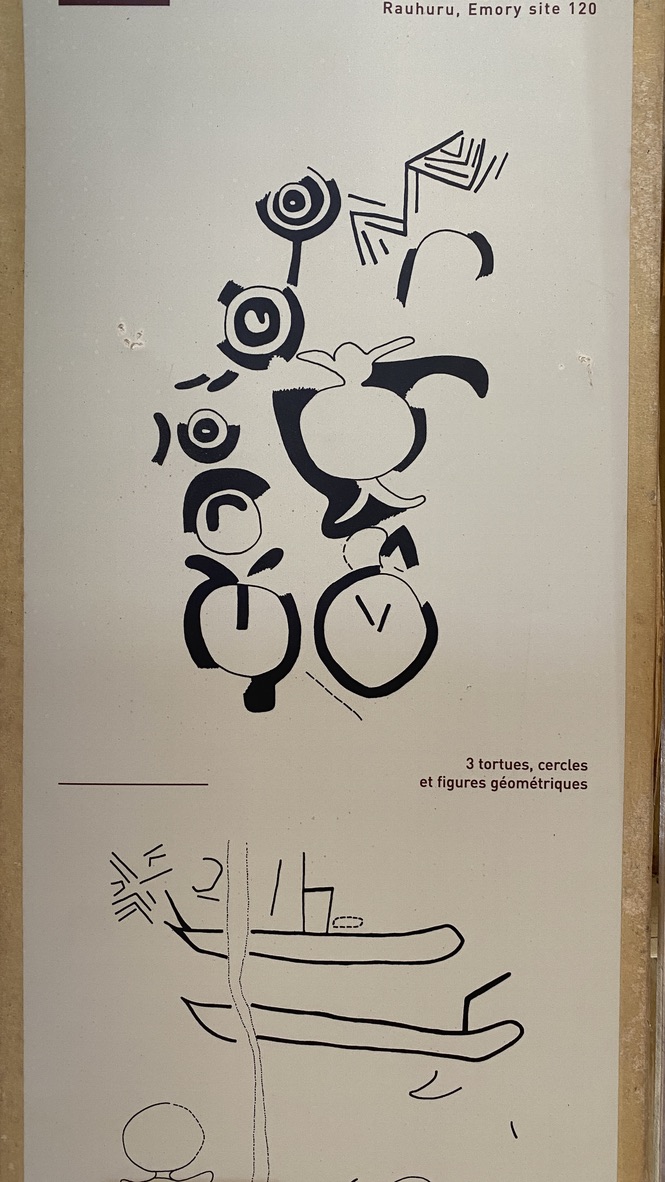 Rauhuru, Emory site 120
3 tortues, cercles
et figures géométriques